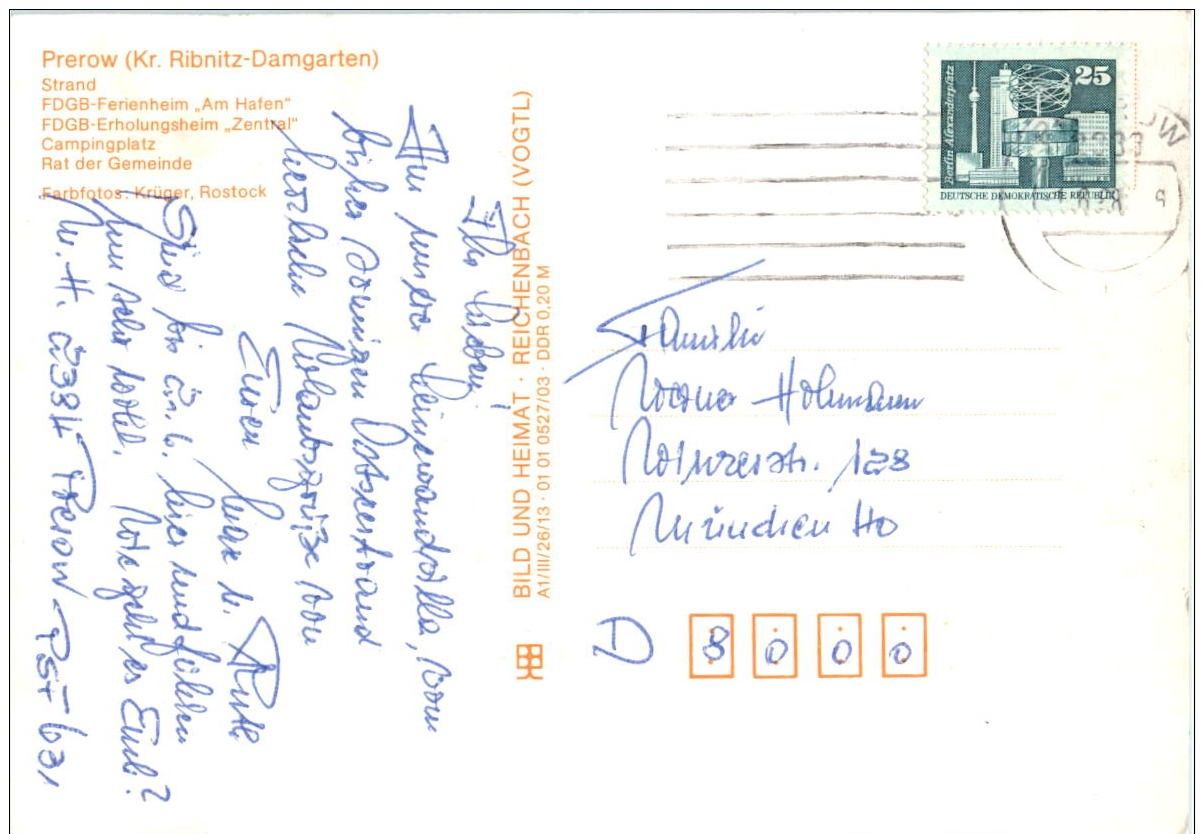 Prerow (Kr. Ribnitz-Damgarten)
Strand
FDGB-Ferienheim „Am Hafen“
FDGB-Erholungsheim „Zentral“
Campingplatz
Rat der Gemeinde
Farbfotos: Krüger, Rostock
Ihr Lieben!
Aus unserer Leinwandvilla, vom
bisher sonnigen Ostseestrand
herzliche Urlaubsgrüße von
Euren
Max u. Ruth
Sind bis 2.6. hier und fühlen
uns sehr wohl. Wie geht es Euch?
z.Z. 2384 Prerow PSF 63,
BILD UND HEIMAT · REICHENBACH (VOGTL)
A1/III/26/13 · 01 01 0527/03 · DDR 0,20 M
Berlin Alexanderplatz
25
DEUTSCHE DEMOKRATISCHE REPUBLIK
Familie
Werner Hohmann
128
München 40
D 8000